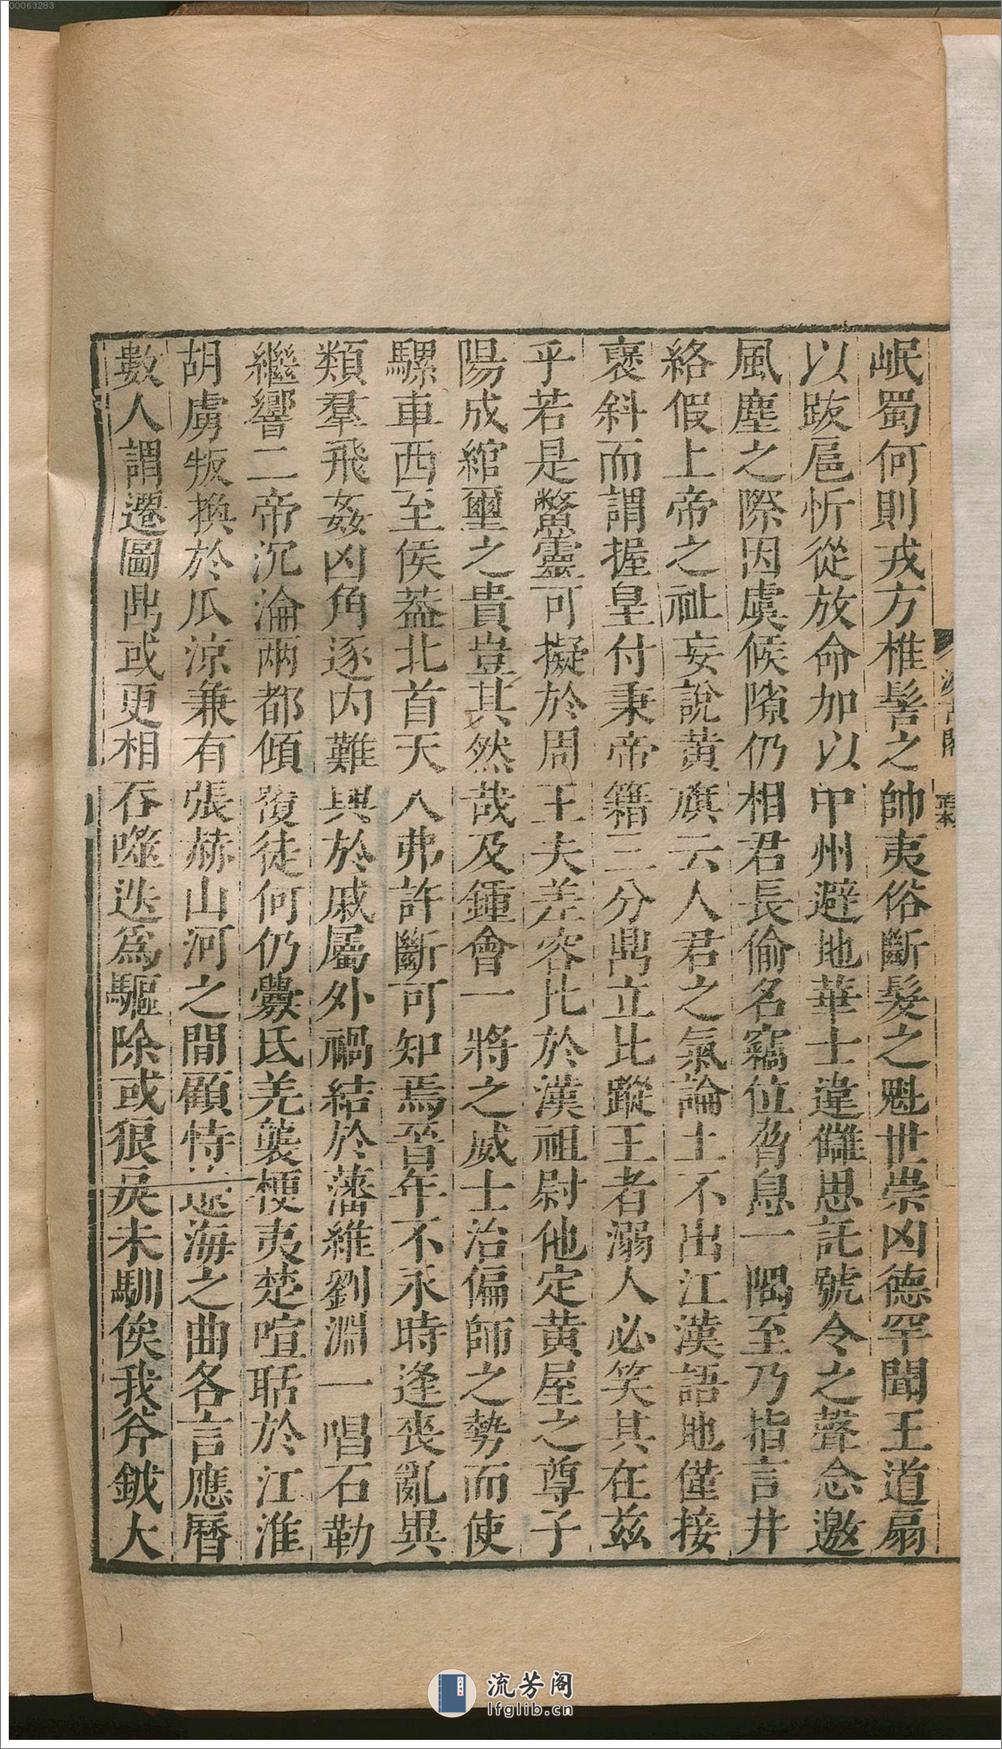 岷蜀何則戎方椎髻之帥夷俗斷髮之魁世崇凶德罕聞王道扇
以跋扈忻從放命加以甲州避地華士違讎思託號令之聲念邀
風塵之際因虞候隙仍相君長偷名竊位脅息一隅至乃指言井
絡假上帝之祉妄說黃旗云人君之氣論土不出江漢語地僅接
襃斜而謂握皇付秉帝籍三分鼎立比蹤王者溺人必笑其在茲
乎若是鱉靈可擬於周王夫差容比於漢祖尉他定黃屋之尊子
陽成綰璽之貴豈其然哉及鍾會一將之威士治偏師之勢而使
騾車西至侯葢北首天人弗許斷可知焉晉年不永時逢喪亂異
類羣飛姦凶角逐內難興於戚屬外禍結於藩維劉淵一唱石勒
繼響二帝沉淪兩都傾覆徒何仍釁氐羌襲梗夷楚喧聒於江淮
胡虜叛換於瓜涼兼有張赫山河之間顧恃遼海之曲各言應曆
數人謂遷圖鼎或更相吞噬迭爲驅除或狠戾未馴俟我斧鉞大
汲古閣
正本
00063283
流芳阁
lfglib.cn